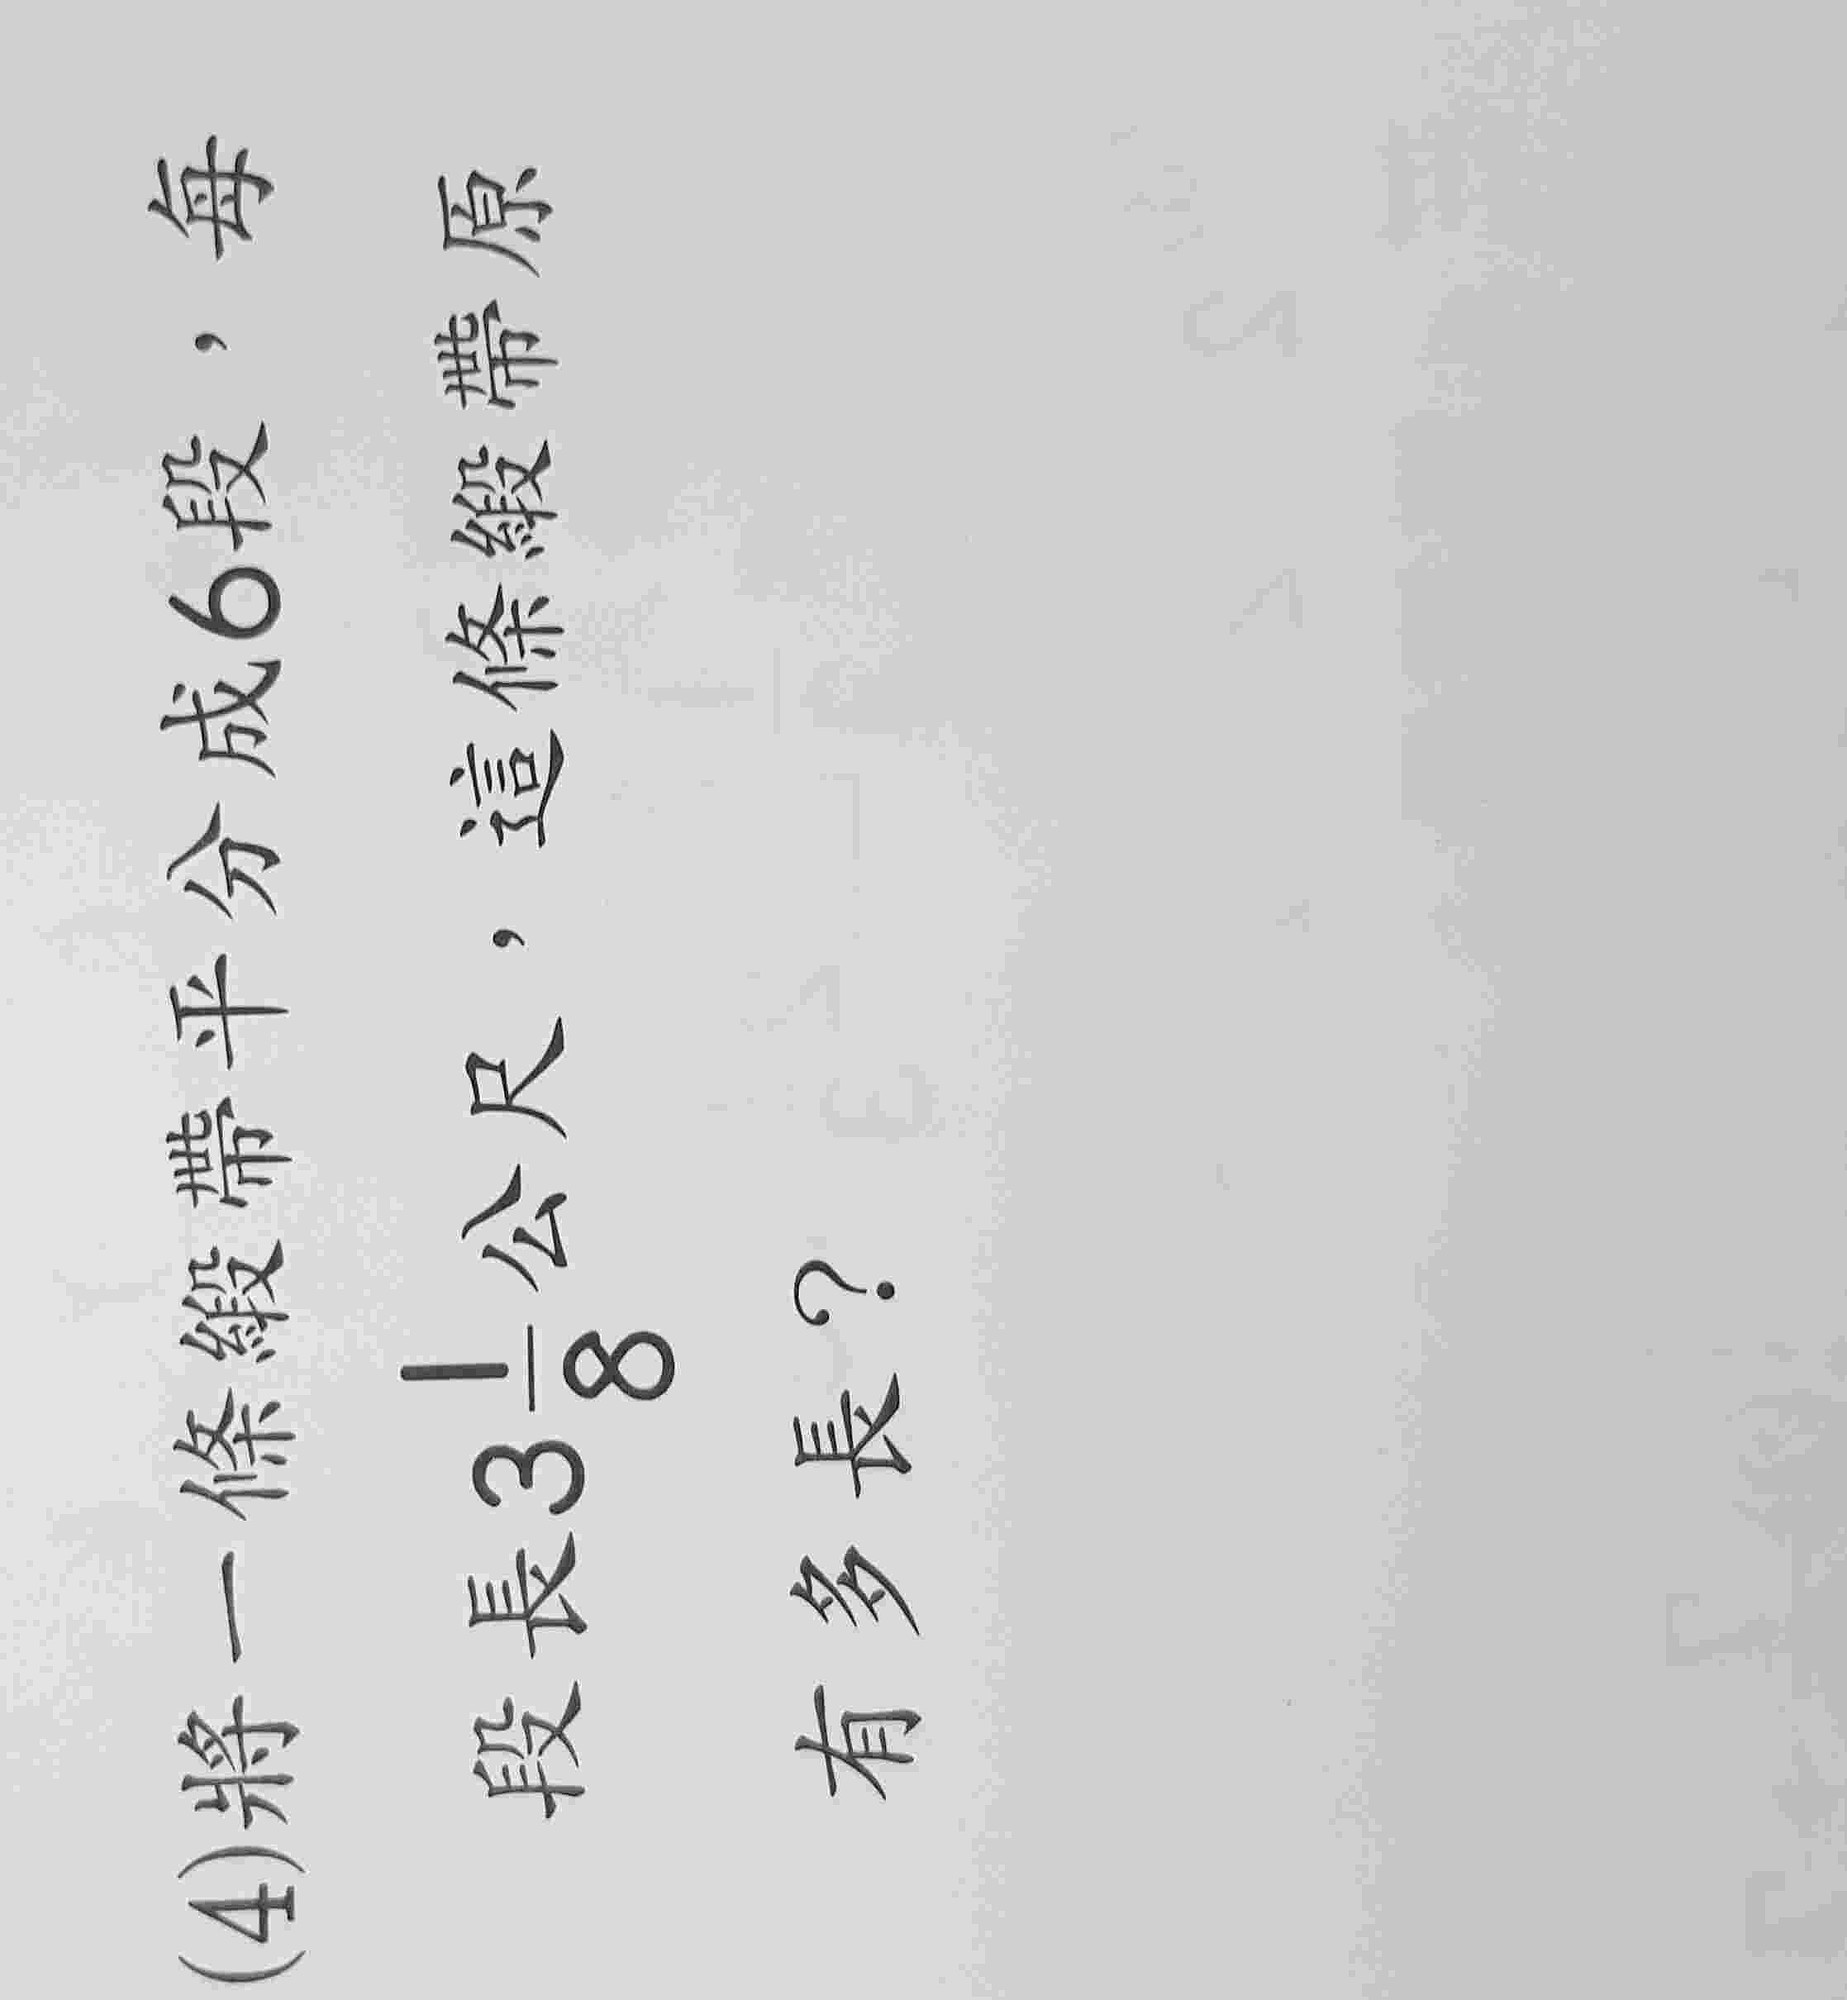 (4)將一條緞帶平分成6段，每
段長3 1/8公尺，這條緞帶原
有多長？